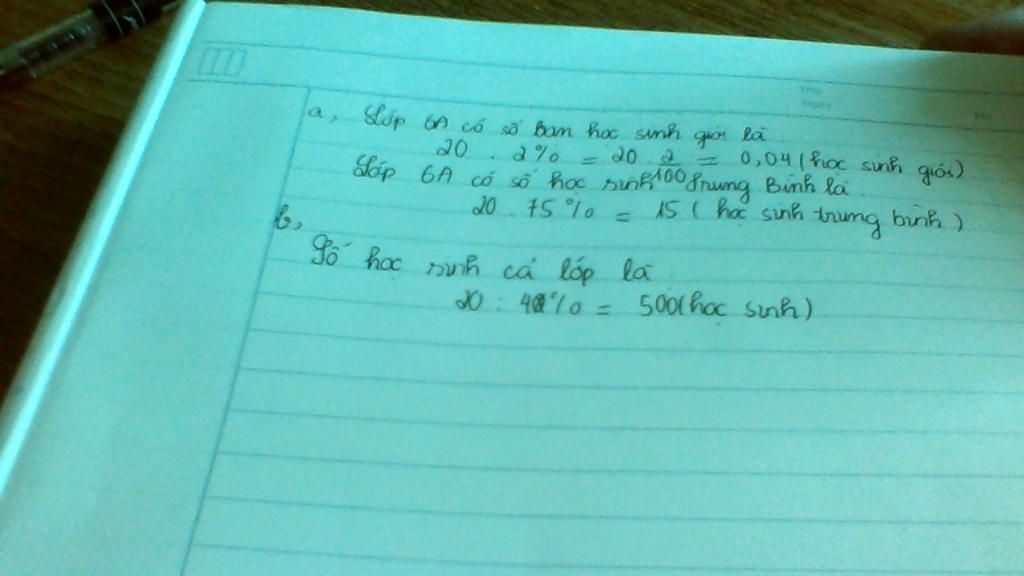 a, Lớp 6A có số bạn học sinh giỏi là
20 . 2% = 20 . 2/100 = 0,04 (học sinh giỏi)
Lớp 6A có số học sinh trung Bình là
20 . 75% = 15 ( học sinh trung bình )
b,
Số học sinh cả lớp là
20 : % = 500(học sinh)